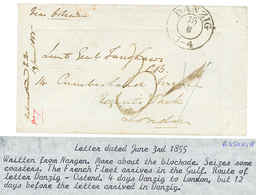 Via Ostend
DANZIG
15
6
3-4
Lieut Genl Fanshawe
CB.
14 Cumberland Terrace
Regents Park
London
Letter dated June 3rd 1855
Written from Nargen. More about the blockade. Seizes some
coasters. The French Fleet arrives in the Gulf. Route of
letter Danzig - Ostend. 4 days Danzig to London, but 12
days before the letter arrived in Danzig.